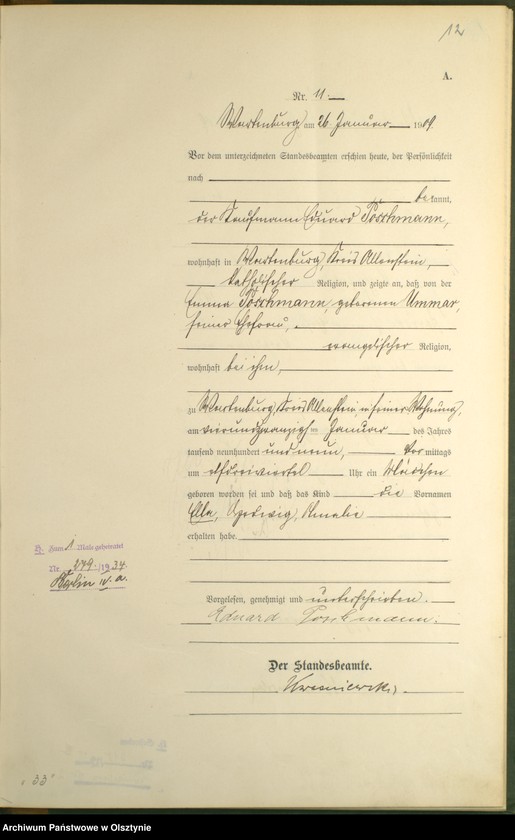 12
A.
Nr. 11.
Wartenburg am 26. Januar 1909.
Vor dem unterzeichneten Standesbeamten erschien heute, der Persönlichkeit
nach
bekannt,
der Kaufmann Eduard Poschmann,
wohnhaft in Wartenburg, Kreis Allenstein,
katholischer Religion, und zeigte an, daß von der
Emma Poschmann, geborenen Ummar,
seiner Ehefrau,
evangelischer Religion,
wohnhaft bei ihm,
zu Wartenburg, Kreis Allenstein, in seiner Wohnung,
am vierundzwanzigsten Januar des Jahres
tausend neunhundert und neun, Vormittags
um dreiviertel Uhr ein Mädchen
geboren worden sei und daß das Kind die Vornamen
Ella, Hedwig, Amalie
erhalten habe.
H. Zum 1 Male geheiratet
Nr. 279/1934
Berlin IV. a.
Vorgelesen, genehmigt und unterschrieben.
Eduard Poschmann.
Der Standesbeamte.
"33"
Archiwum Państwowe w Olsztynie